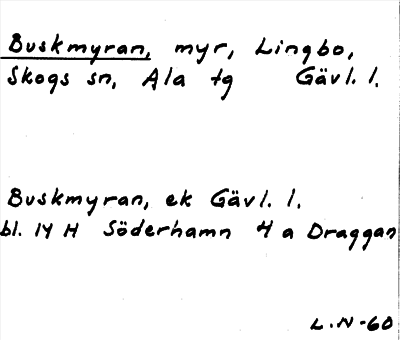 Buskmyran, myr, Lingbo,
Skogs sn, Ala tg Gävl. l.
Buskmyran, ek Gävl. l.
bl. 14 H Söderhamn 4 a Draggan
L.N-60